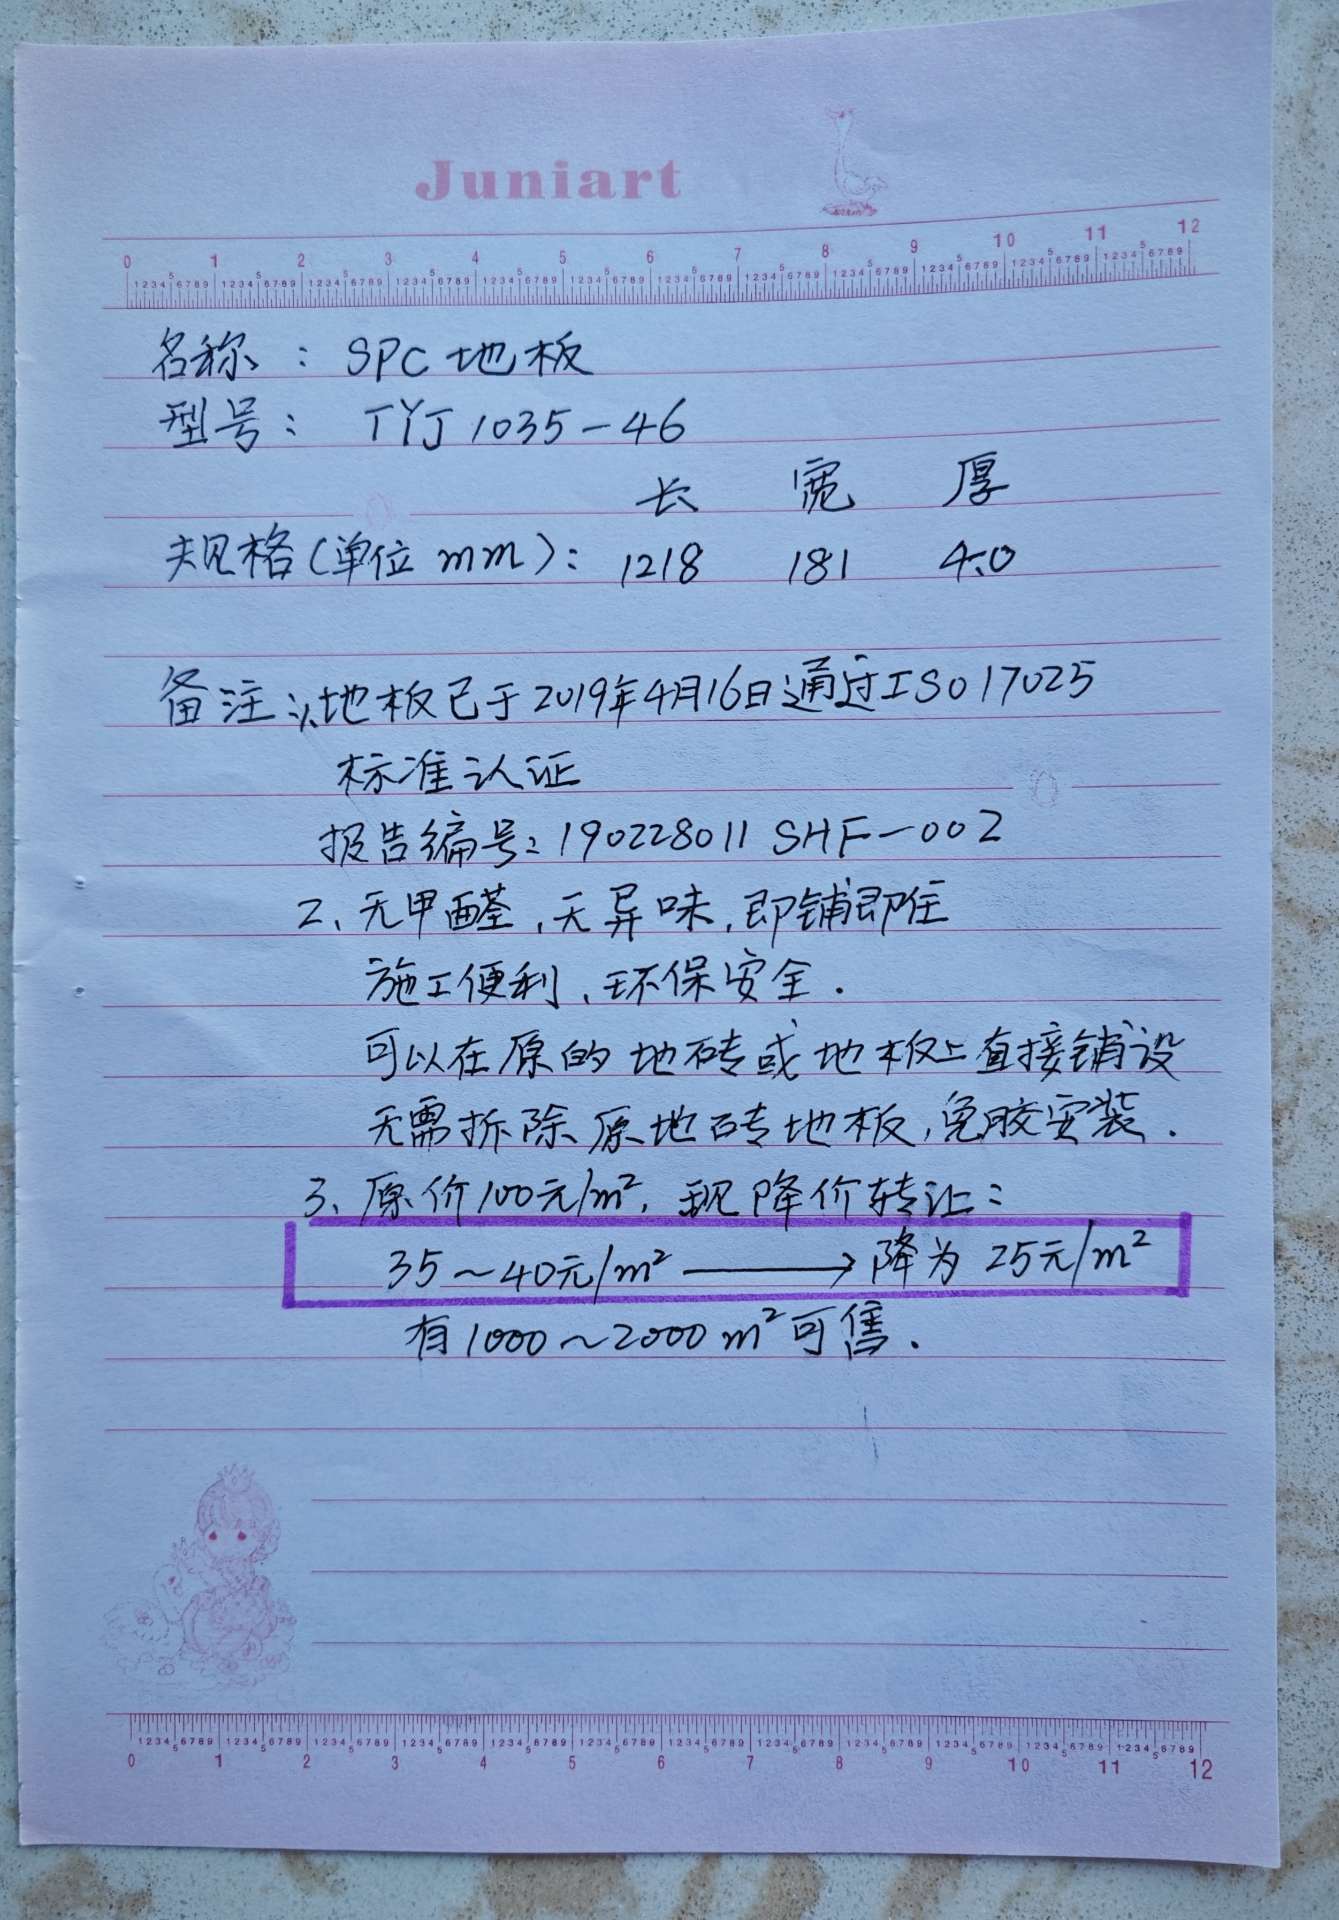 Juniart
0 1 2 3 4 5 6 7 8 9 10 11 12
名称：SPC 地板
型号：TYJ 1035-46
长 宽 厚
规格(单位 mm)：1218 181 4.0
备注：1、地板已于2019年4月16日通过ISO17025
标准认证
报告编号：190228011 SHF-002
2、无甲醛，无异味，即铺即住
施工便利、环保安全.
可以在原的地砖或地板上直接铺设
无需拆除原地砖地板，免胶安装.
3、原价100元/m²，现降价转让：
35～40元/m² → 降为 25元/m²
有1000～2000 m²可售.
0 1 2 3 4 5 6 7 8 9 10 11 12